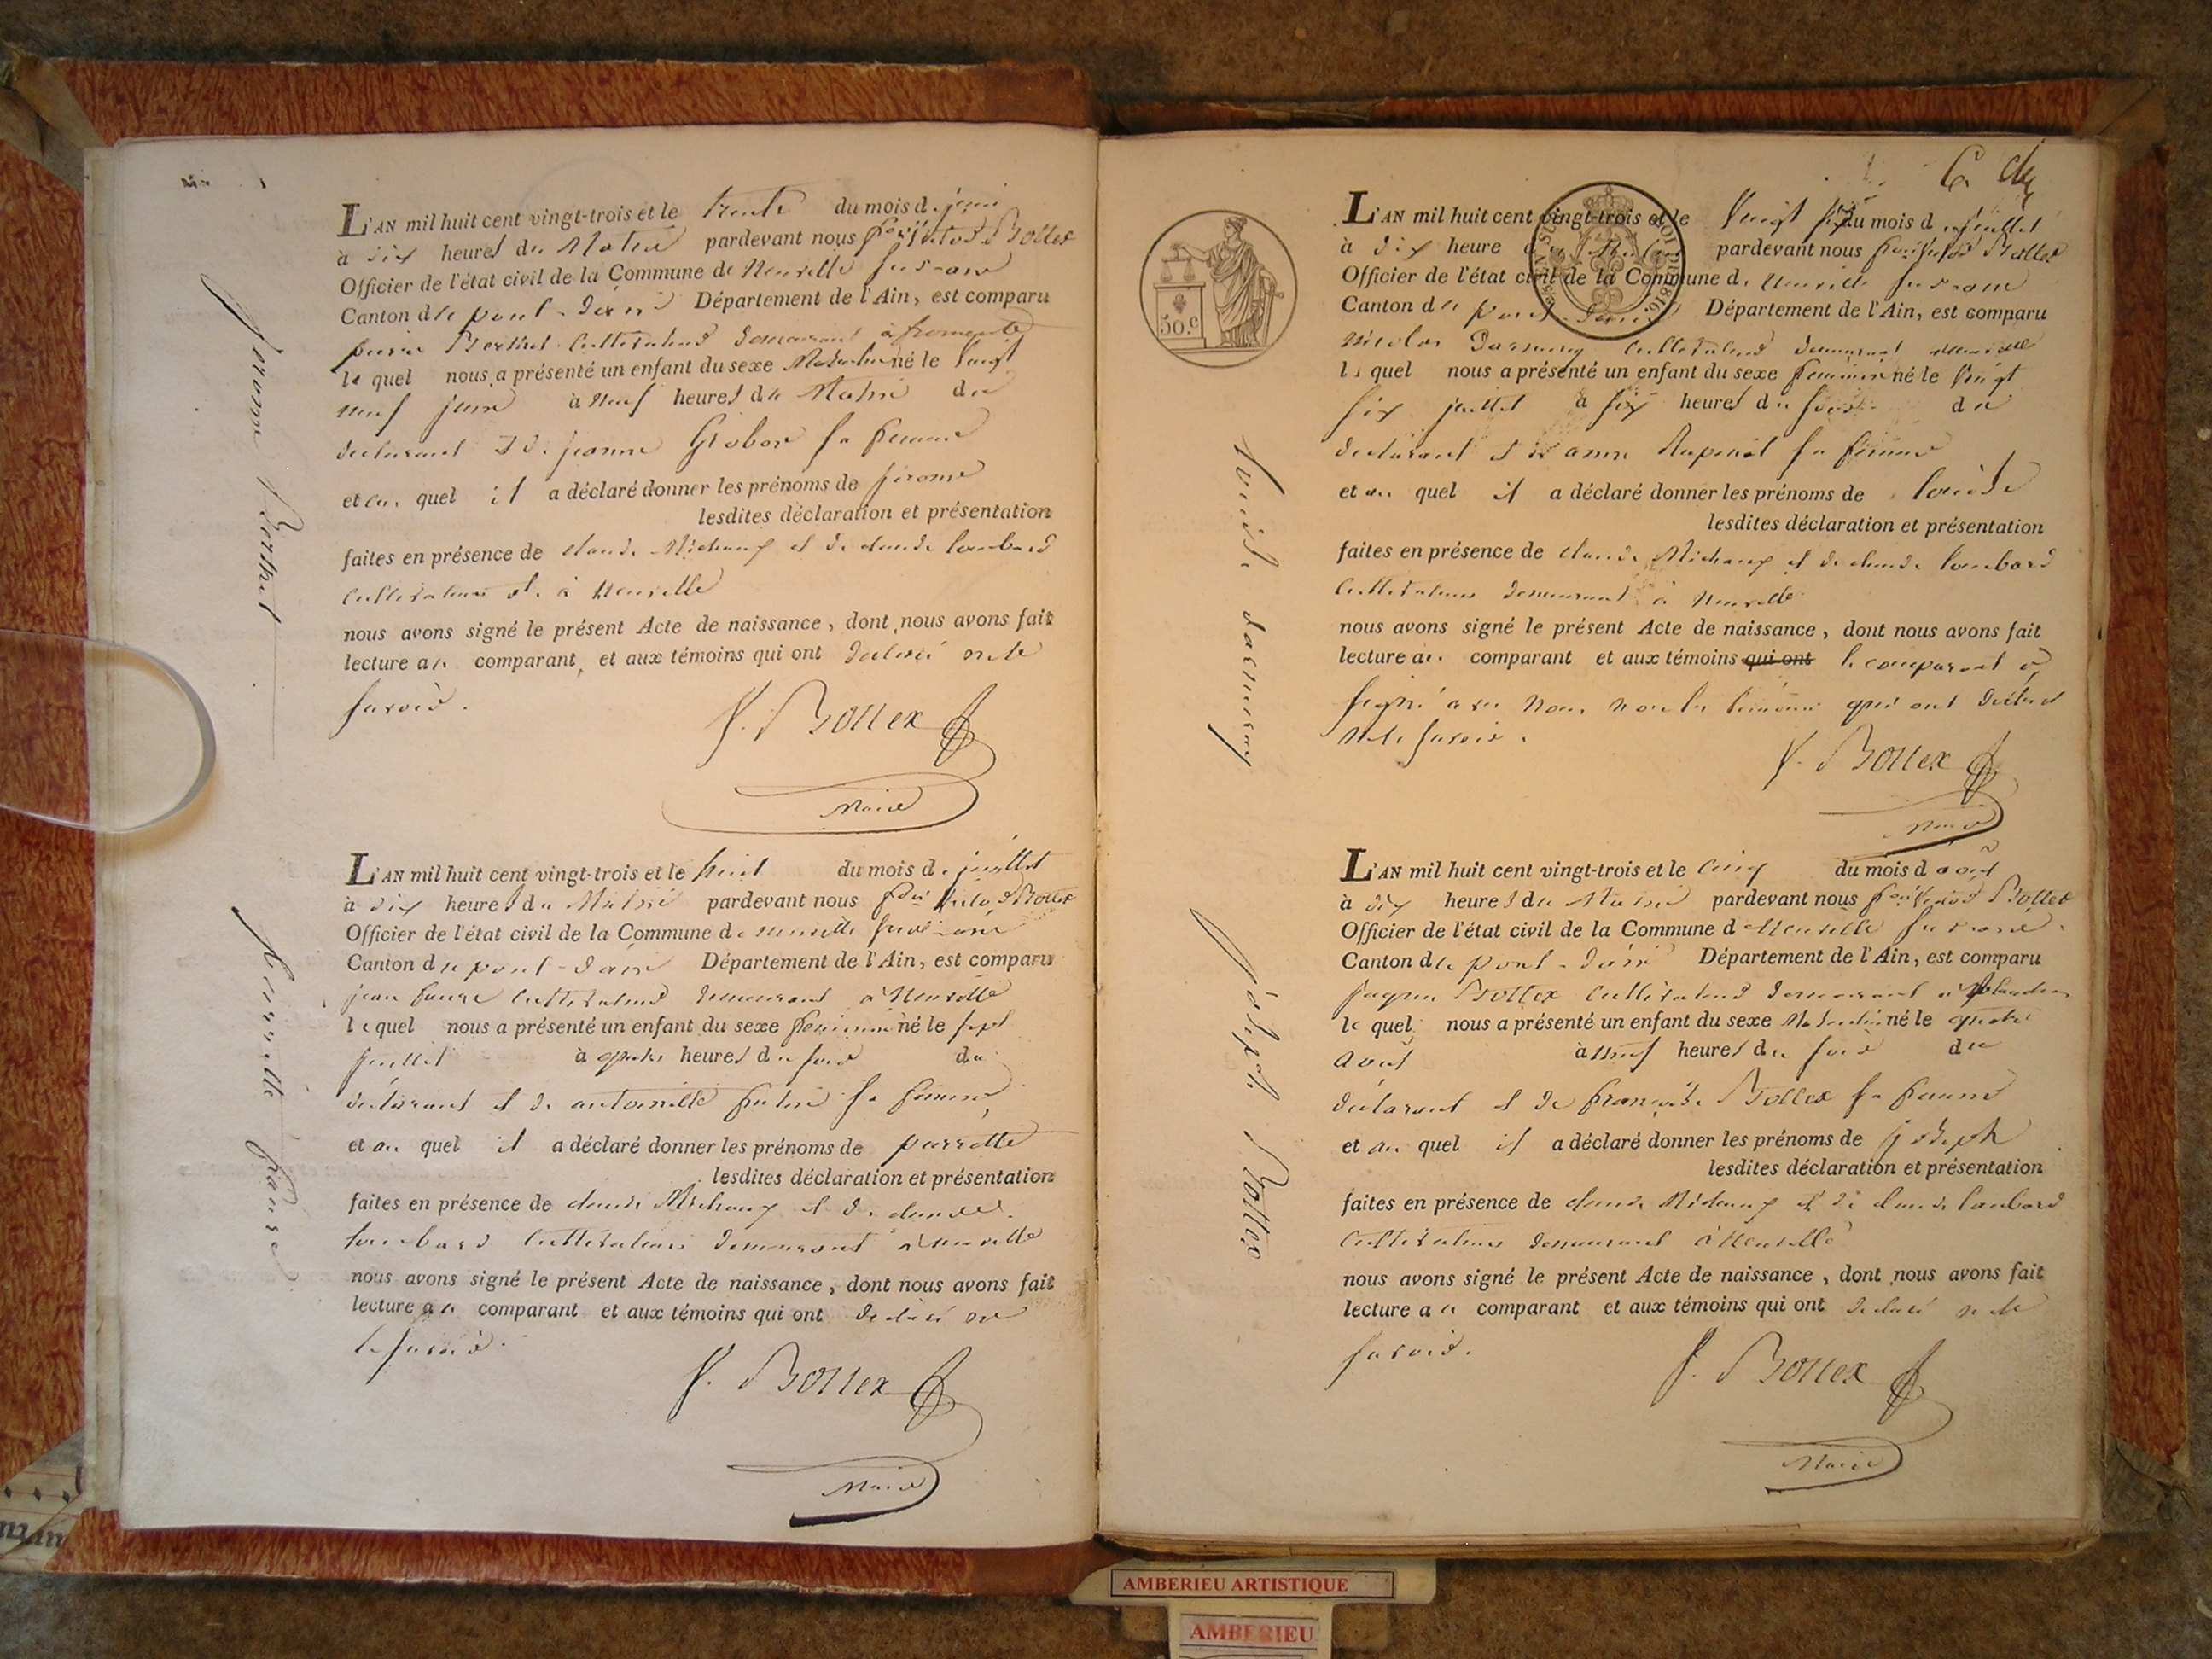 Jerome Berthet
L'AN mil huit cent vingt-trois et le trente du mois de juin
à dix heures du Matin pardevant nous Bottex
Officier de l'état civil de la Commune de Neuville sur-ain
Canton de pont-d'ain Département de l'Ain, est comparu
Berthet Cultivateur demeurant à fromente
le quel nous a présenté un enfant du sexe Masculin né le vingt
neuf juin à neuf heures du Matin du
declarant et de jeanne Grobon sa femme
et au quel il a déclaré donner les prénoms de jerome
lesdites déclaration et présentation
faites en présence de claude Michaux et de claude lombard
Cultivateurs à Neuville
nous avons signé le présent Acte de naissance, dont nous avons fait
lecture au comparant et aux témoins qui ont declaré ne le
savoir.
Bottex
Maire
faure
L'AN mil huit cent vingt-trois et le huit du mois de juillet
à dix heures du Matin pardevant nous Bottex
Officier de l'état civil de la Commune de neuville sur-ain
Canton de pont-d'ain Département de l'Ain, est comparu
jean faure Cultivateur demeurant à Neuville
le quel nous a présenté un enfant du sexe feminin né le sept
juillet à quatre heures du soir du
déclarant et de antoinette sa femme
et au quel il a déclaré donner les prénoms de perrette
lesdites déclaration et présentation
faites en présence de claude Michaux et de claude
lombard Cultivateurs demeurant à neuville
nous avons signé le présent Acte de naissance, dont nous avons fait
lecture au comparant et aux témoins qui ont declaré ne
le savoir.
Bottex
Maire
50.c
louise
L'AN mil huit cent vingt-trois et le Vingt du mois de juillet
à dix heure du Matin pardevant nous Bottex
Officier de l'état civil de la Commune de neuville sur-ain
Canton de pont-d'ain Département de l'Ain, est comparu
nicolas Cultivateur demeurant
le quel nous a présenté un enfant du sexe feminin né le vingt
six juillet à six heures du soir du
declarant et de anne sa femme
et au quel il a déclaré donner les prénoms de louise
lesdites déclaration et présentation
faites en présence de claude Michaux et de claude lombard
Cultivateurs demeurant à neuville
nous avons signé le présent Acte de naissance, dont nous avons fait
lecture au comparant et aux témoins qui ont le comparant a
signé avec nous non les témoins qui ont déclaré
ne le savoir.
Bottex
Maire
Joseph Bottex
L'AN mil huit cent vingt-trois et le cinq du mois d août
à dix heures du Matin pardevant nous Bottex
Officier de l'état civil de la Commune d Neuville sur ain
Canton de pont-d'ain Département de l'Ain, est comparu
Bottex Cultivateur demeurant à
le quel nous a présenté un enfant du sexe Masculin né le quatre
Août à neuf heures du soir du
déclarant et de françoise Bottex sa femme
et au quel il a déclaré donner les prénoms de joseph
lesdites déclaration et présentation
faites en présence de claude Michaux et de claude lombard
Cultivateurs demeurant à Neuville
nous avons signé le présent Acte de naissance, dont nous avons fait
lecture au comparant et aux témoins qui ont declaré ne le
savoir.
Bottex
Maire
AMBERIEU ARTISTIQUE
AMBERIEU